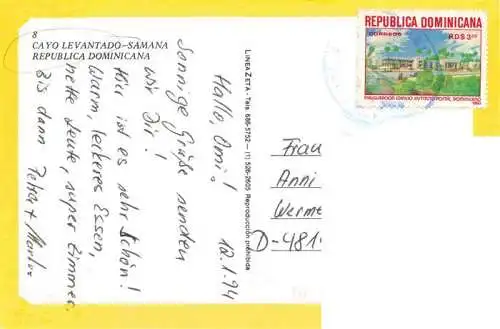 8
CAYO LEVANTADO-SAMANA
REPUBLICA DOMINICANA
Hallo, Omi! 12.1.94
Sonnige Grüße senden
wir Dir!
Hier ist es sehr schön!
Warm, leckeres Essen,
nette Leute, super Zimmer.
Bis dann Petra +
LINEA ZETA - Tels. 686-5752 - (1) 526-2605 Reproducción prohibida
REPUBLICA DOMINICANA
CORREOS RD$3.00
Frau
Anni
Werme
D-481